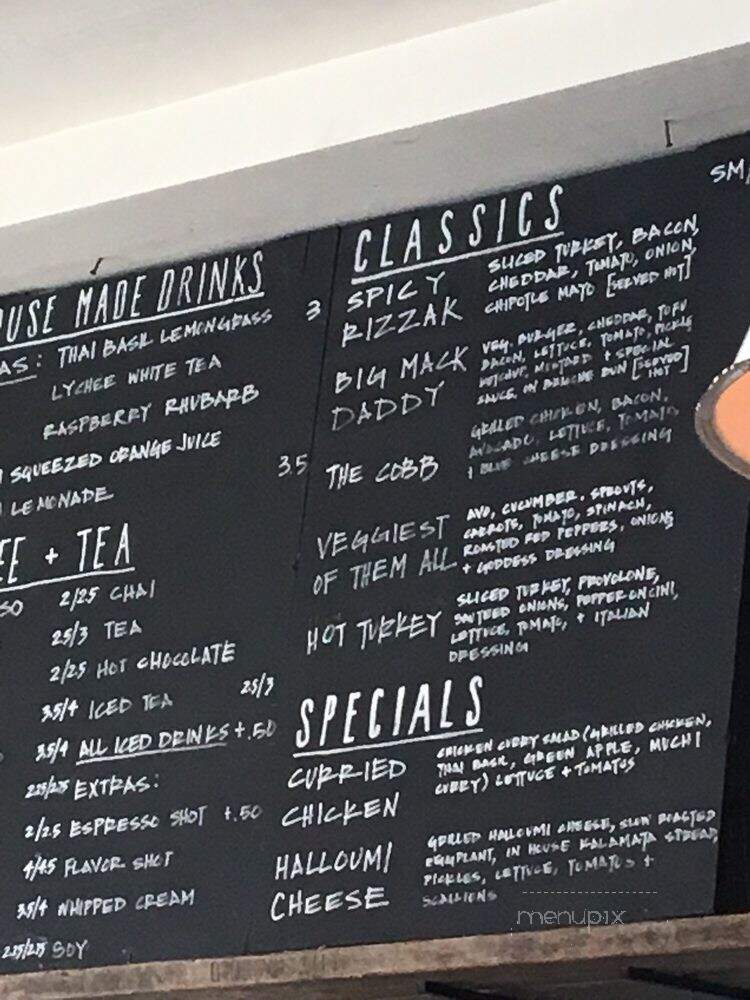 OUSE MADE DRINKS
AS: THAI BASIL LEMONGRASS
LYCHEE WHITE TEA
RASPBERRY RHUBARB
SQUEEZED ORANGE JUICE
LEMONADE
3
3.5
EE + TEA
SO
2/25 CHAI
25/3 TEA
2/25 HOT CHOCOLATE
3.5/4 ICED TEA
25/3
3.5/4 ALL ICED DRINKS +.50
EXTRAS:
2/25 ESPRESSO SHOT +.50
4/4.5 FLAVOR SHOT
3.5/4 WHIPPED CREAM
SOY
SM/
CLASSICS
SPICY
RIZZAK
SLICED TURKEY, BACON,
CHEDDAR, TOMATO, ONION,
CHIPOTLE MAYO [SERVED HOT]
BIG MACK
DADDY
VEG. BURGER, CHEDDAR, TOFU
BACON, LETTUCE, TOMATO, PICKLE
KETCHUP, MUSTARD + SPECIAL
SAUCE, ON BRIOCHE BUN [SERVED
HOT]
THE COBB
GRILLED CHICKEN, BACON,
AVOCADO, LETTUCE, TOMATO,
BLUE CHEESE DRESSING
VEGGIEST
OF THEM ALL
AVO, CUCUMBER, SPROUTS,
CARROTS, TOMATO, SPINACH,
ROASTED RED PEPPERS, ONIONS
+ GODDESS DRESSING
HOT TURKEY
SLICED TURKEY, PROVOLONE,
SAUTEED ONIONS, PEPPERONCINI,
LETTUCE, TOMATO, + ITALIAN
DRESSING
SPECIALS
CURRIED
CHICKEN
CHICKEN CURRY SALAD (GRILLED CHICKEN,
THAI BASIL, GREEN APPLE, MUCHI
CURRY) LETTUCE + TOMATOS
HALLOUMI
CHEESE
GRILLED HALLOUMI CHEESE, SLOW ROASTED
EGGPLANT, IN HOUSE KALAMATA SPREAD,
PICKLES, LETTUCE, TOMATOS +
SCALLIONS
menupix